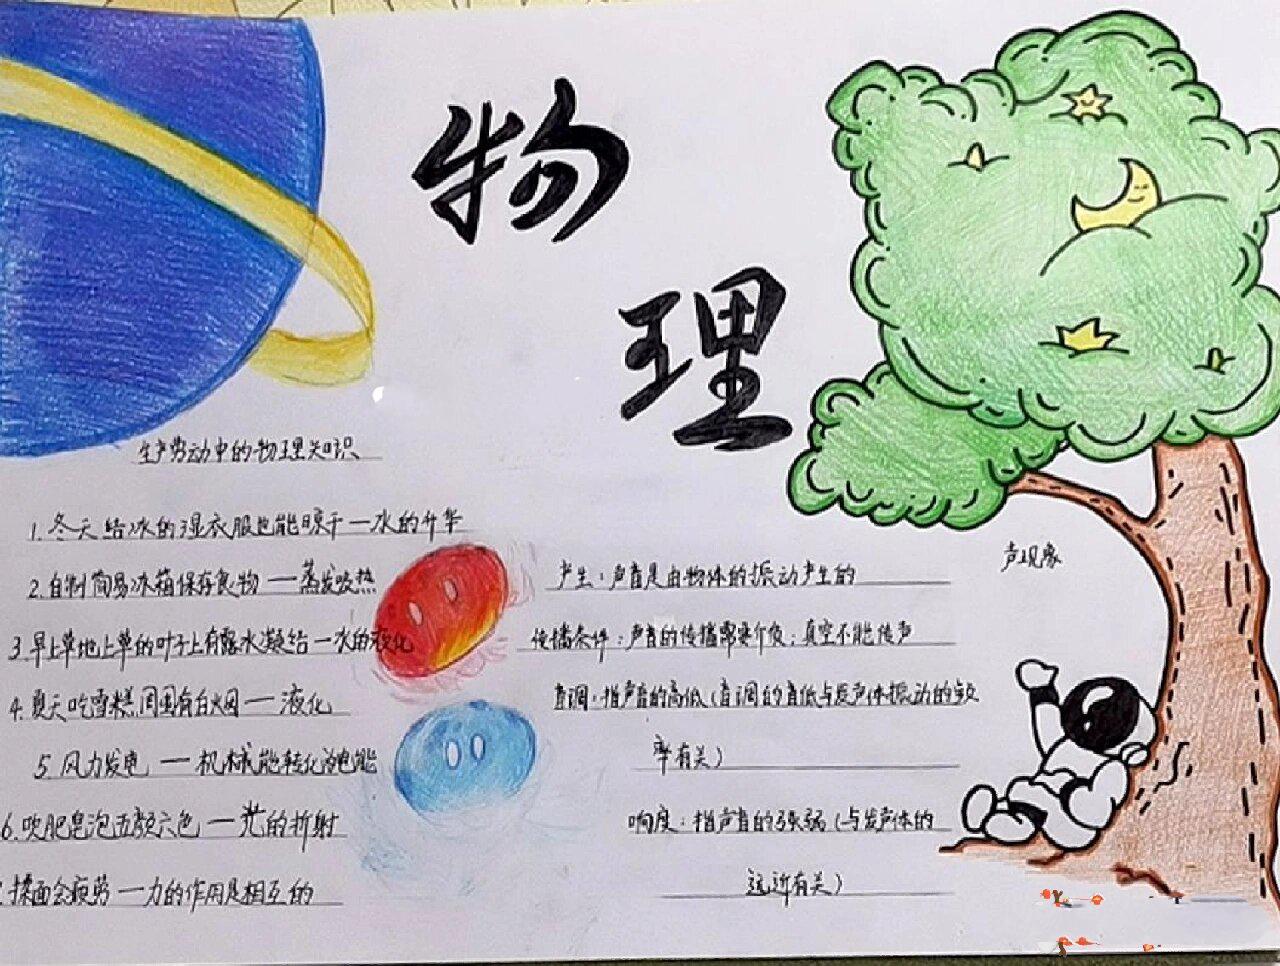 物
理
生产劳动中的物理知识
1.冬天结冰的湿衣服也能晾干一水的升华
2.自制简易冰箱保存食物一蒸发吸热
3.早上草地上草的叶子上有露水凝结一水的液化
4.夏天吃雪糕周围有白火圆一液化
5.风力发电一机械能转化为电能
6.吹肥皂泡五颜六色一光的折射
揉面会疲劳一力的作用是相互的
声现象
产生:声音是由物体的振动产生的
传播条件:声音的传播需要介质;真空不能传声
音调:指声音的高低(音调的音低与发声体振动的频
率有关)
响度:指声音的强弱(与发声体的
远近有关)